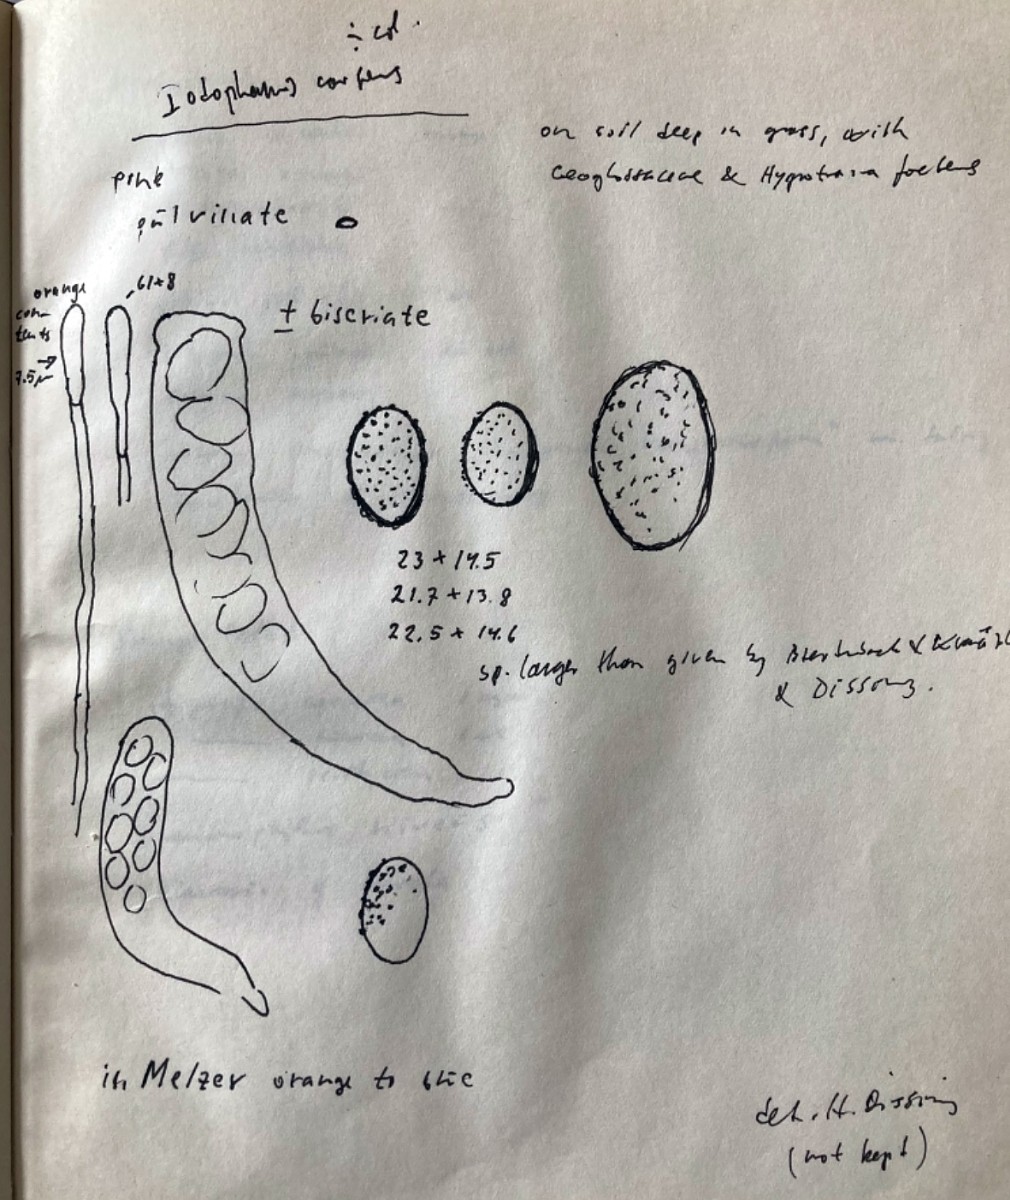 ÷ col.
Iodophanus carneus
on soil deep in grass, with
Geoglossaceae & Hygrotrama foetens
pink
pulvinate
orange
con-
tents
7.5µ
61×8
± biseriate
23 × 14.5
21.7 × 13.8
22.5 × 14.6
sp. larger than given by Breitenbach & Kränzl
& Dissing.
in Melzer orange to
det. H. Dissing
(not kept)